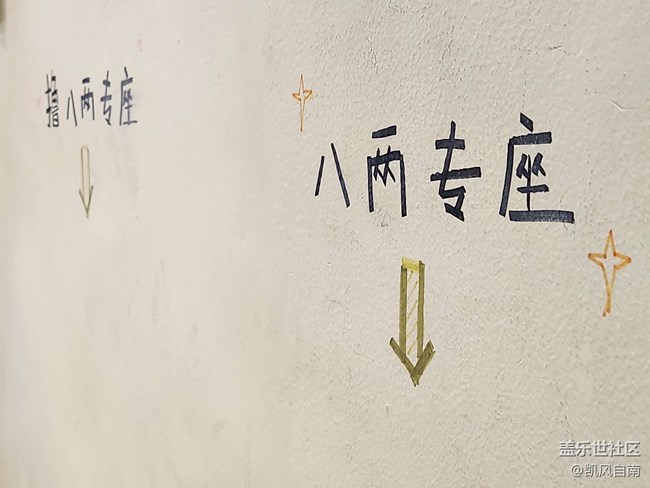 撸八两专座
八两专座
盖乐世社区
@凯风自南